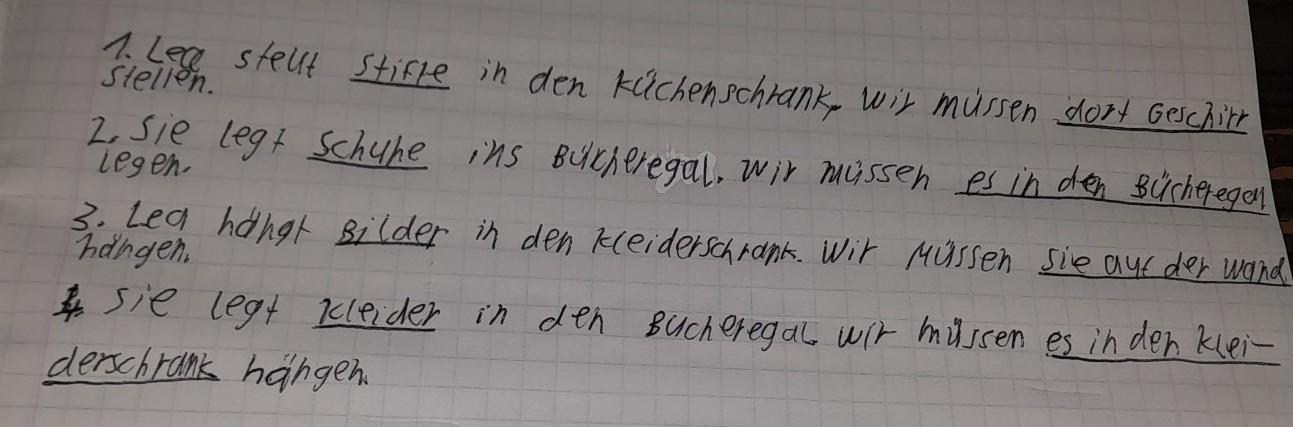 1. Lea stellt Stifte in den Küchenschrank, Wir müssen dort Geschirr
stellen.
2. Sie legt Schuhe ins Bücheregal. Wir müssen es in den Bücheregal
legen.
3. Lea hängt Bilder in den Kleiderschrank. Wir müssen sie auf der wand
hängen.
4. Sie legt Kleider in den Bucheregal. Wir müssen es in den Klei-
derschrank hängen.